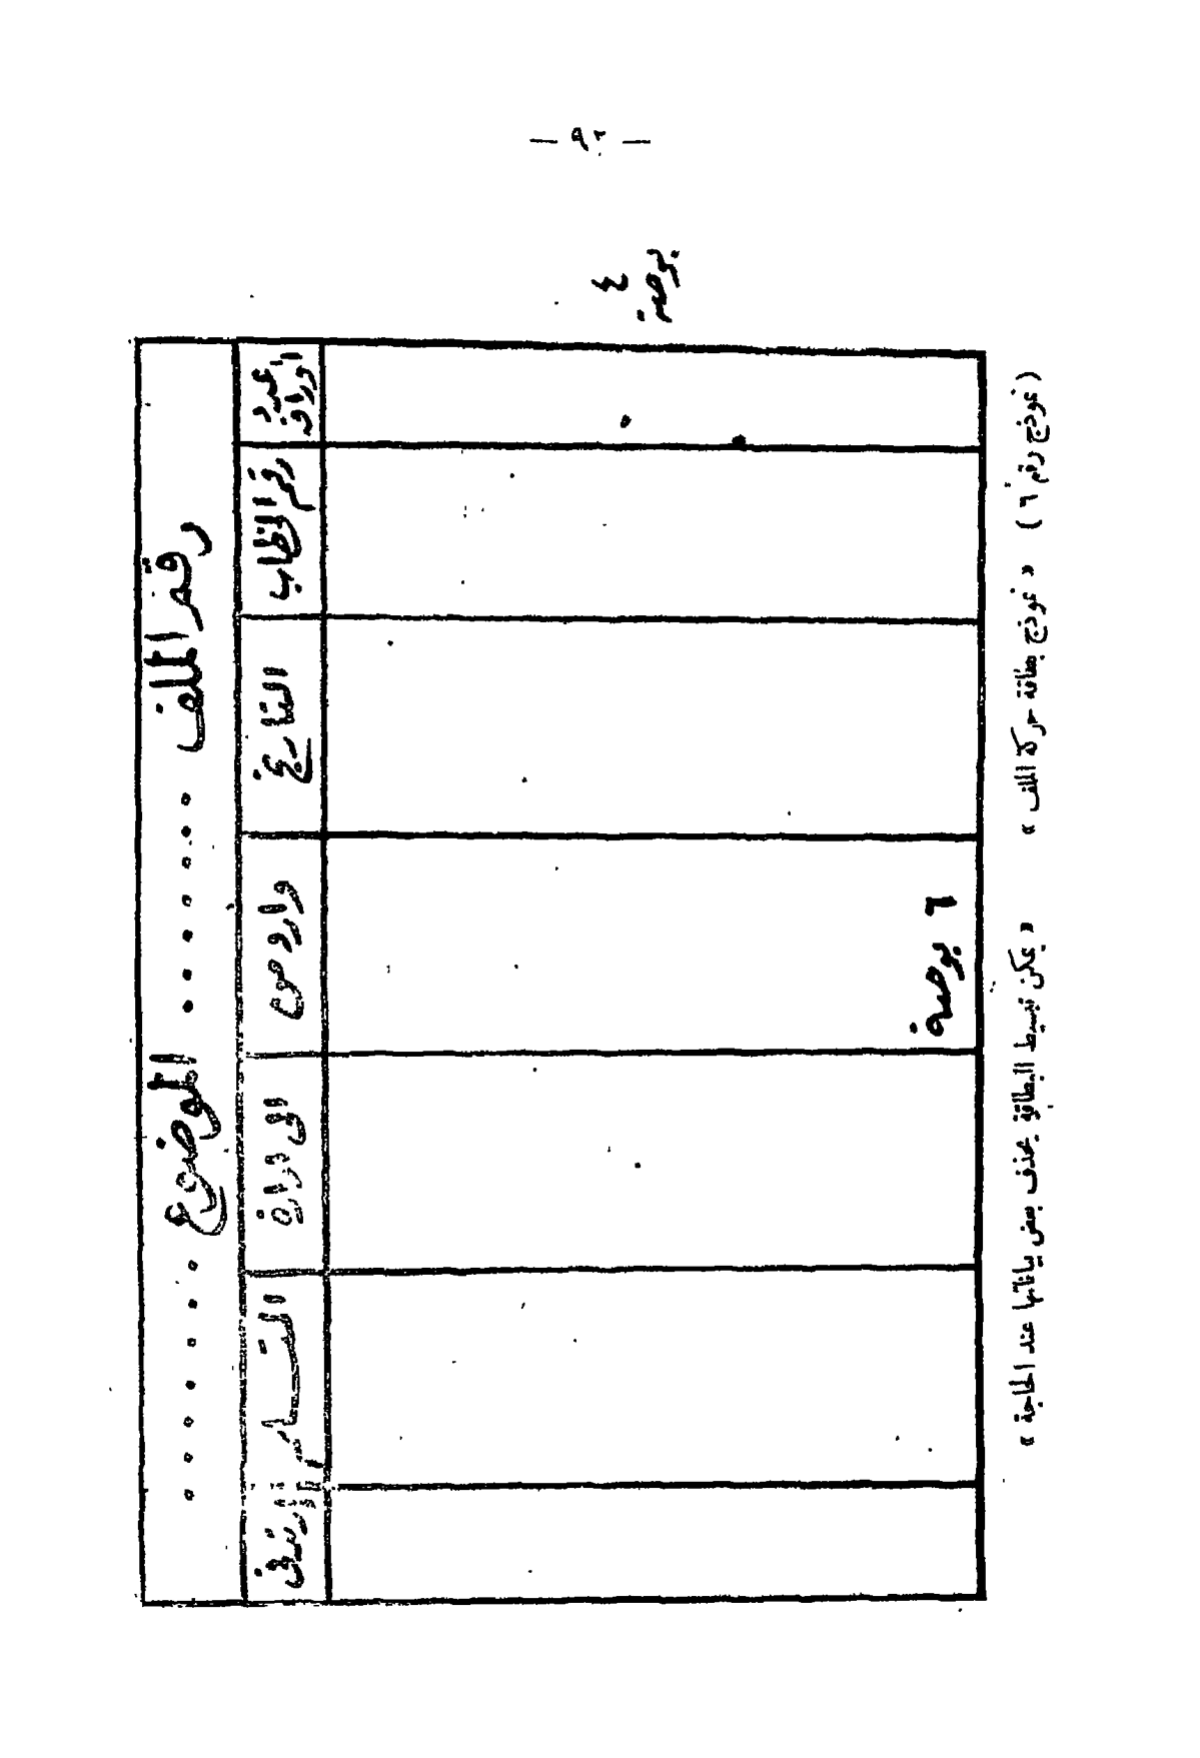 — ٩٢ —
٤ بوصة
رقم الملف . . . . . . . الموضوع . . . . . . .
عدد أوراقه
رقم الخطاب
التاريخ
وارد من
الإدارة
التـــاريخ
٦ بوصة
(نموذج رقم ٦) « نموذج بطاقة حركة الملف »
« يمكن تبسيط البطاقة بحذف بعض بياناتها عند الحاجة »